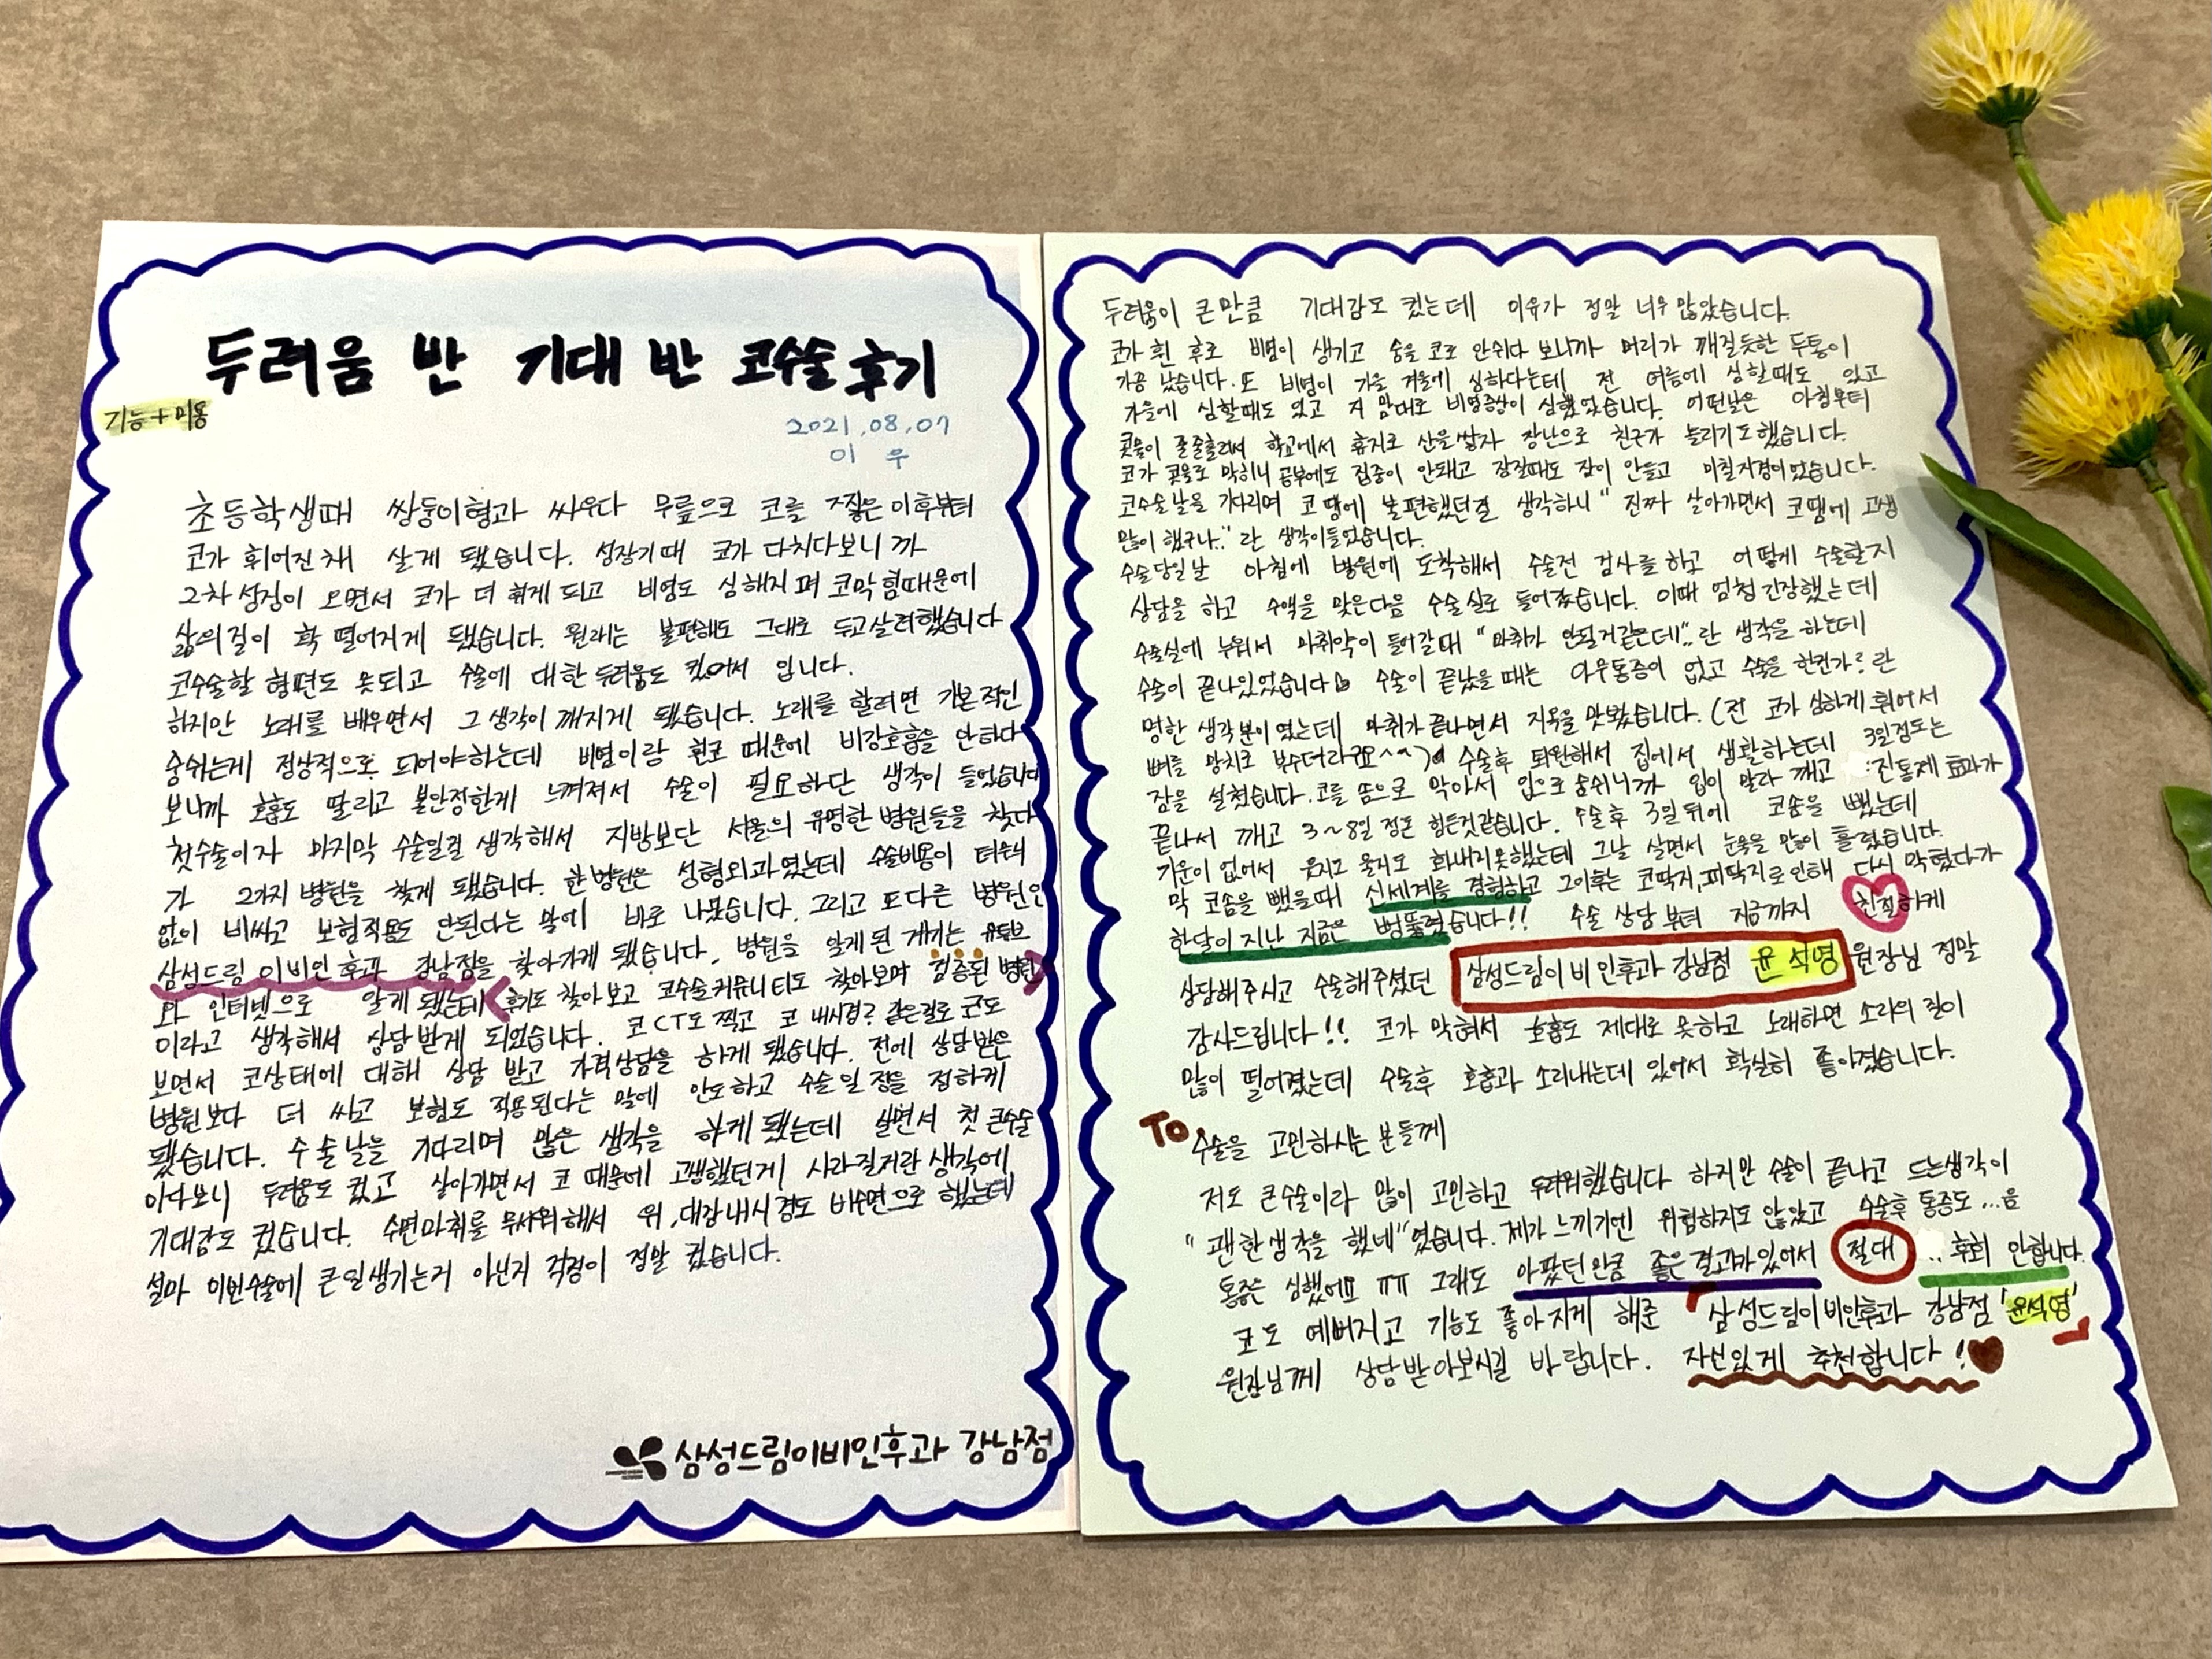 두려움 반 기대 반 코수술 후기
기능+미용
2021.08.07
이 우
초등학생때 쌍둥이형과 싸우다 무릎으로 코를 찧은 이후부터
코가 휘어진채 살게 됐습니다. 성장기때 코가 다치다보니까
2차성징이 오면서 코가 더 휘게 되고 비염도 심해지며 코막힘때문에
삶의질이 확 떨어지게 됐습니다. 원래는 불편해도 그대로 두고살려했습니다
코수술할 형편도 못되고 수술에 대한 두려움도 컸어서 입니다.
하지만 노래를 배우면서 그 생각이 깨지게 됐습니다. 노래를 할려면 기본적인
숨쉬는게 정상적으로 되어야하는데 비염이랑 휜코 때문에 비강호흡을 안하다
보니까 호흡도 딸리고 불안정한게 느껴져서 수술이 필요하단 생각이 들었습니다
첫수술이자 마지막 수술일걸 생각해서 지방보단 서울의 유명한 병원들을 찾다
가 2가지 병원을 찾게 됐습니다. 한병원은 성형외과였는데 수술비용이 터무니
없이 비싸고 보험적용도 안된다는 말에 바로 나왔습니다. 그리고 또다른 병원인
삼성드림이비인후과 강남점을 찾아가게 됐습니다. 병원을 알게된 계기는 유튜브
와 인터넷으로 알게 됐는데 후기도 찾아보고 코수술커뮤니티도 찾아보며 검증된 병원
이라고 생각해서 상담받게 되었습니다. 코CT도 찍고 코 내시경? 같은걸로 코도
보면서 코상태에 대해 상담 받고 가격상담을 하게 됐습니다. 전에 상담받은
병원보다 더 싸고 보험도 적용된다는 말에 안도하고 수술일정을 정하게
됐습니다. 수술날을 기다리며 많은 생각을 하게 됐는데 살면서 첫 큰수술
이다보니 두려움도 컸고 살아가면서 코 때문에 고생했던게 사라질거란 생각에
기대감도 컸습니다. 수면마취를 무서워해서 위,대장내시경도 비수면으로 했는데
설마 이번수술에 큰일생기는거 아닌지 걱정이 정말 컸습니다.
삼성드림이비인후과 강남점
두려움이 큰만큼 기대감도 컸는데 이유가 정말 너무 많았습니다.
코가 휜 후로 비염이 생기고 숨을 코로 안쉬다 보니까 머리가 깨질듯한 두통이
가끔 났습니다. 또 비염이 가을 겨울에 심하다는데 전 여름에 심할때도 있고
가을에 심할때도 있고 지 맘대로 비염증상이 심했었습니다. 어떤날은 아침부터
콧물이 줄줄흘러서 학교에서 휴지로 산을쌓자 장난으로 친구가 놀리기도했습니다.
코가 콧물로 막히니 공부에도 집중이 안돼고 잠잘때도 잠이 안들고 미칠지경이었습니다.
코수술날을 기다리며 코 땜에 불편했던걸 생각하니 "진짜 살아가면서 코땜에 고생
많이 했구나.." 란 생각이들었습니다.
수술당일날 아침에 병원에 도착해서 수술전 검사를 하고 어떻게 수술할지
상담을 하고 수액을 맞은다음 수술실로 들어갔습니다. 이때 엄청긴장했는데
수술실에 누워서 마취약이 들어갈때 "마취가 안될거같은데".. 란 생각을 하는데
수술이 끝나있었습니다 수술이 끝났을때는 아무통증이 없고 수술을 한건가? 란
멍한 생각뿐이였는데 마취가 끝나면서 지옥을 맛봤습니다. (전 코가 심하게 휘어서
뼈를 망치로 부수더라구요^^) 수술후 퇴원해서 집에서 생활하는데 3일정도는
잠을 설쳤습니다. 코를 솜으로 막아서 입으로 숨쉬니까 입이 말라 깨고 진통제 효과가
끝나서 깨고 3~8일 정돈 힘든것같습니다. 수술후 3일뒤에 코솜을 뺐는데
기운이 없어서 웃지도 울지도 화내지못했는데 그날 살면서 눈물을 많이 흘렸습니다.
막 코솜을 뺐을때 신세계를 경험하고 그이후는 코딱지,피딱지로인해 다시 막혔다가
한달이 지난 지금은 뻥뚫렸습니다!! 수술 상담부터 지금까지 친절하게
상담해주시고 수술해주셨던 삼성드림이비인후과 강남점 윤석영 원장님 정말
감사드립니다!! 코가 막혀서 호흡도 제대로 못하고 노래하면 소리의 질이
많이 떨어졌는데 수술후 호흡과 소리내는데 있어서 확실히 좋아졌습니다.
To 수술을 고민하시는 분들께
저도 큰수술이라 많이 고민하고 두려워했습니다 하지만 수술이 끝나고 드는생각이
"괜한생각을 했네"였습니다. 제가 느끼기엔 위험하지도 않았고 수술후 통증도...음
통증은 심했어요 ㅠㅠ 그래도 아팠던만큼 좋은결과가있어서 절대 .. 후회 안합니다.
코도 예뻐지고 기능도 좋아지게 해준 「삼성드림이비인후과 강남점 '윤석영'」
원장님께 상담받아보시길 바랍니다. 자신있게 추천합니다!